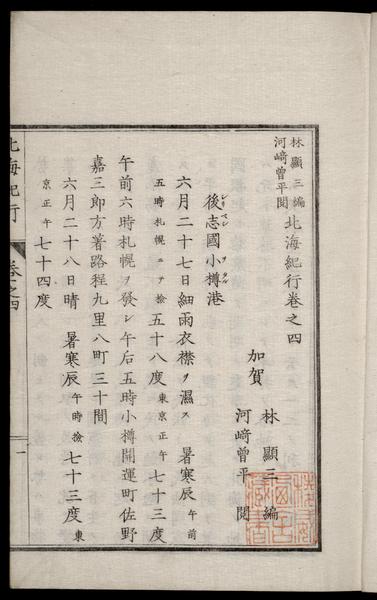 林顯三編
河﨑曾平閲
北海紀行卷之四
加賀 林顯三 編
河﨑曾平 閲
後志國小樽港
シリベシ ヲタル
六月二十七日細雨衣襟ヲ濕ス 暑寒辰 午前
五時札幌ニテ檢 五十八度 東京正午 七十三度
午前六時札幌ヲ發シ午后五時小樽開運町佐野
嘉三郎方著路程九里八町三十間
六月二十八日晴 暑寒辰 午時檢 七十三度 東
京正午 七十四度
北海紀行 卷之四 一